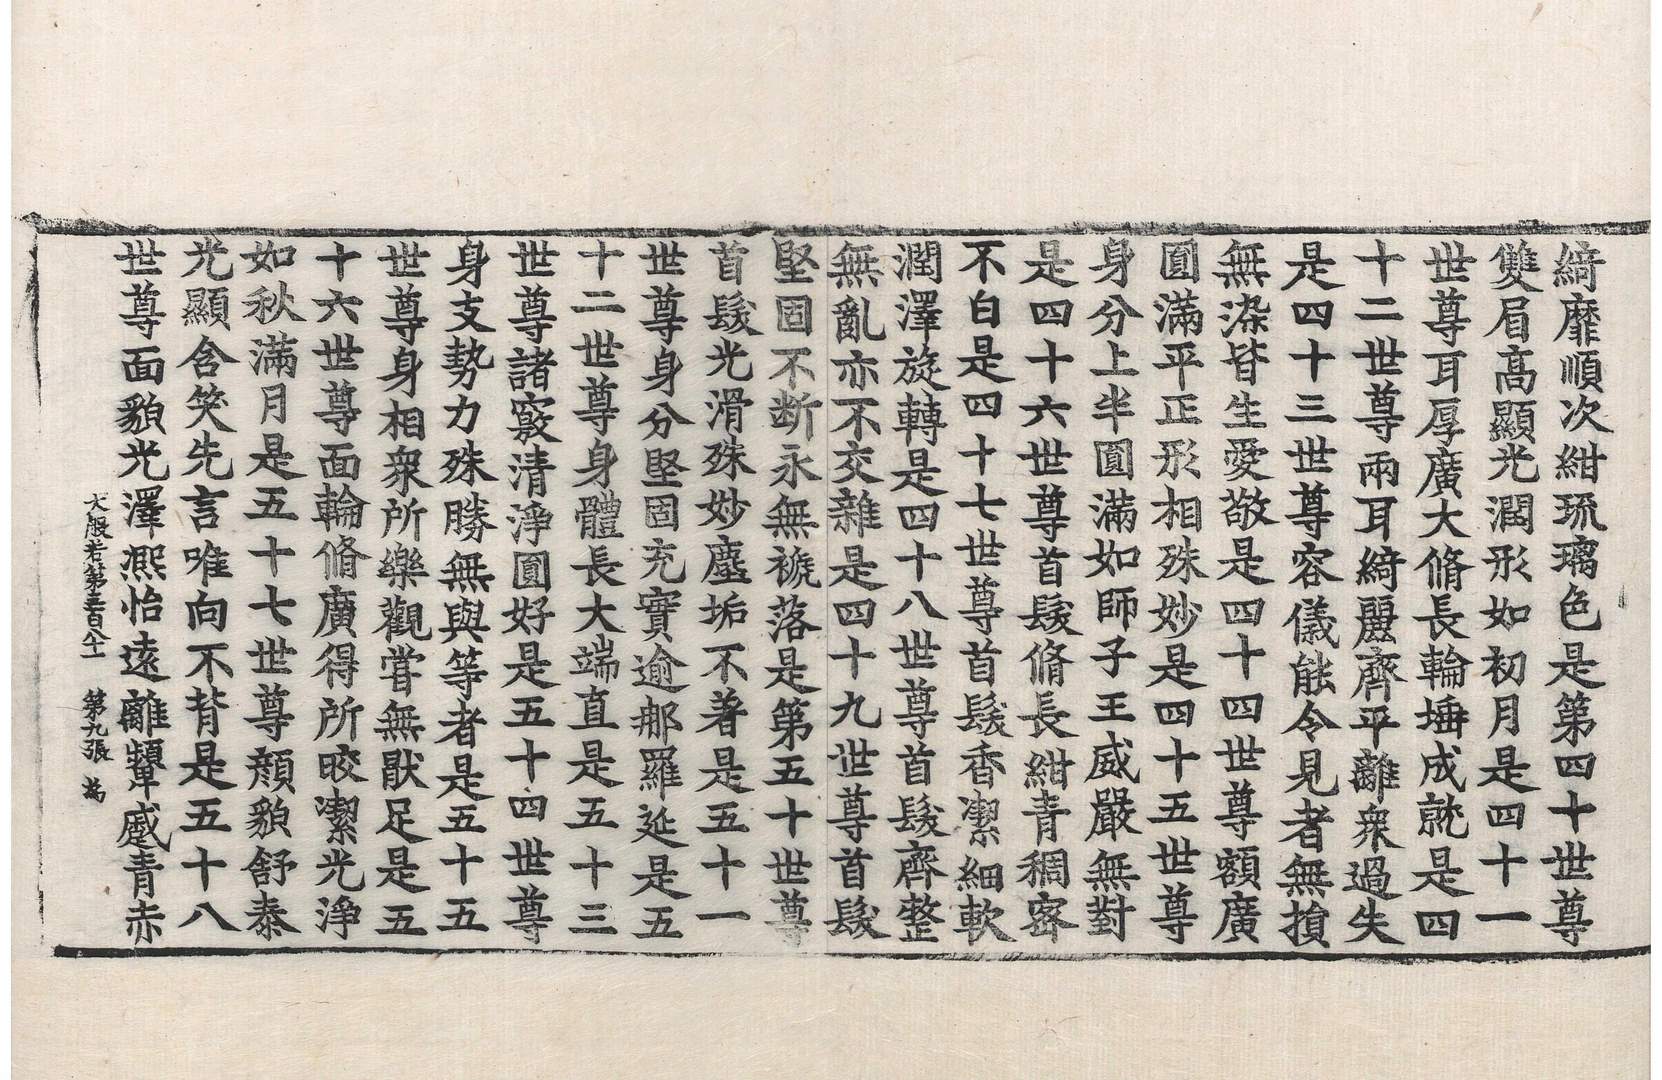 綺靡順次紺琉璃色是第四十世尊
雙眉高顯光潤形如初月是四十一
世尊耳厚廣大脩長輪埵成就是四
十二世尊兩耳綺麗齊平離衆過失
是四十三世尊容儀能令見者無損
無染皆生愛敬是四十四世尊額廣
圓滿平正形相殊妙是四十五世尊
身分上半圓滿如師子王威嚴無對
是四十六世尊首髮脩長紺青稠密
不白是四十七世尊首髮香潔細軟
潤澤旋轉是四十八世尊首髮齊整
無亂亦不交雜是四十九世尊首髮
堅固不断永無褫落是第五十世尊
首髮光滑殊妙塵垢不著是五十一
世尊身分堅固充實逾那羅延是五
十二世尊身體長大端直是五十三
世尊諸竅清淨圓好是五十四世尊
身支勢力殊勝無與等者是五十五
世尊身相衆所樂觀甞無猒足是五
十六世尊面輪脩廣得所皎潔光淨
如秋滿月是五十七世尊顔貌舒泰
光顯含笑先言唯向不背是五十八
世尊面貌光澤熈怡遠離顰蹙青赤
大般若第三百八十一 第九張 為